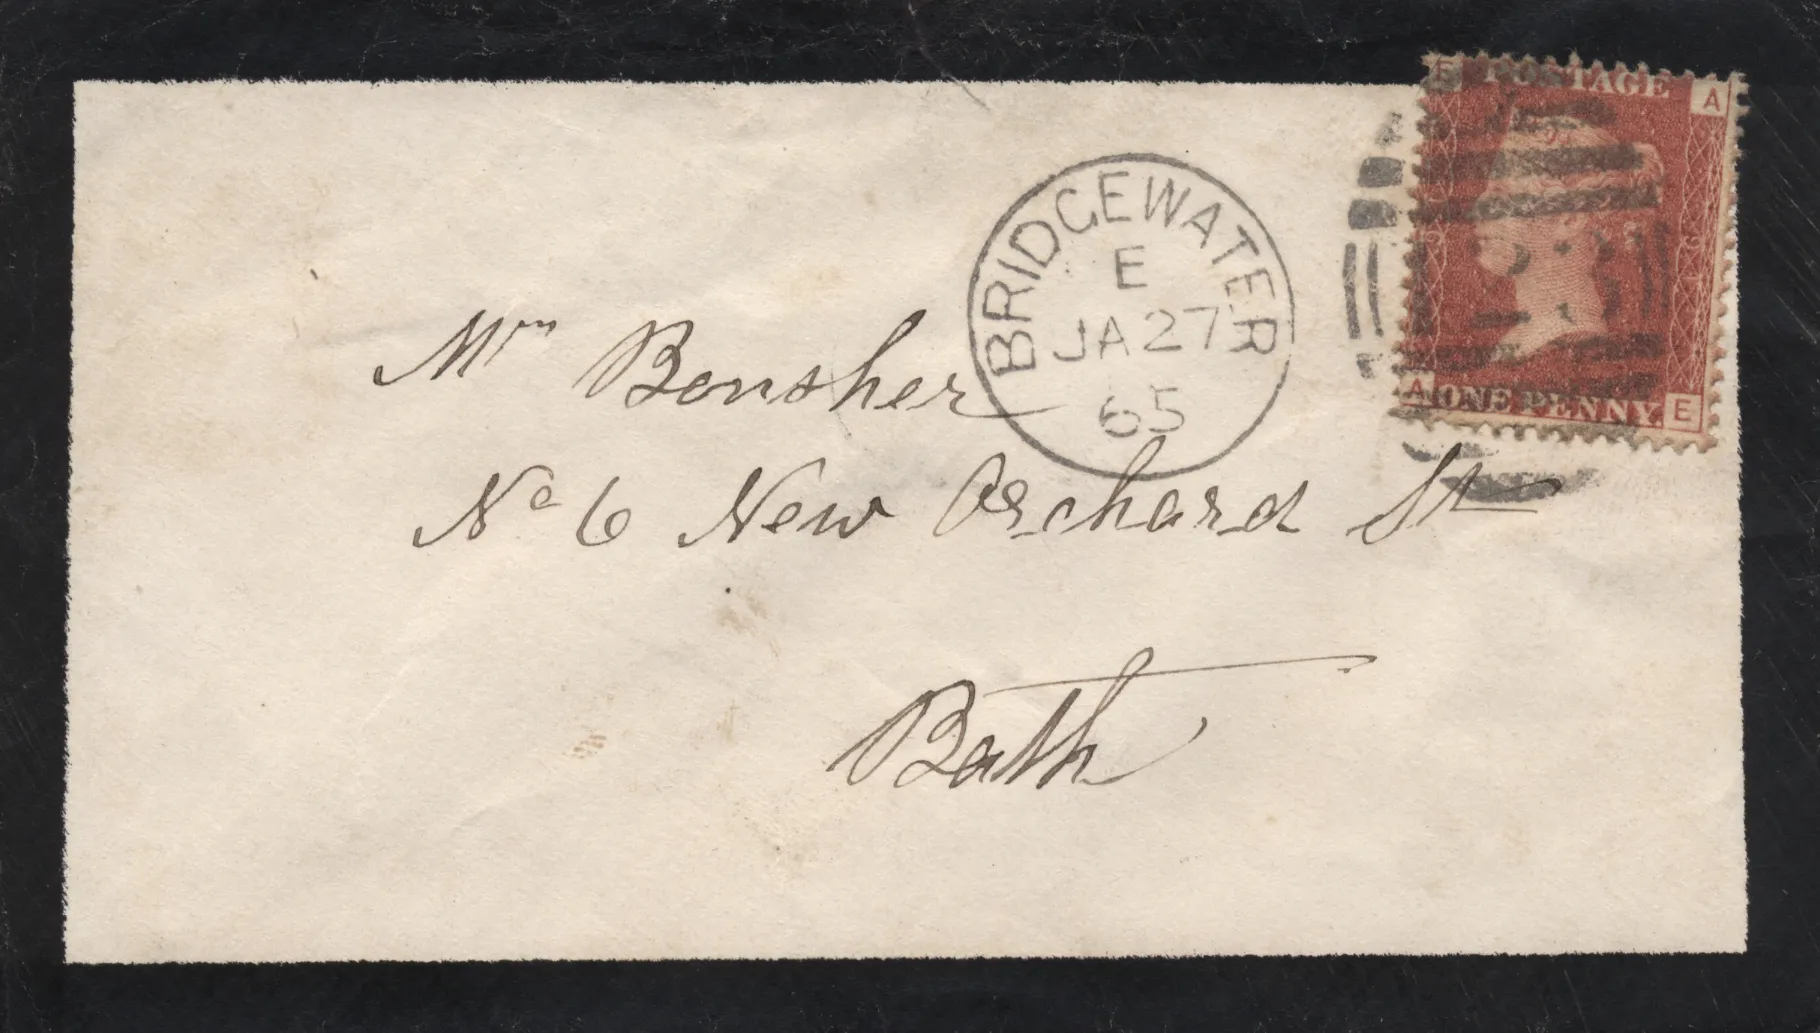 E POSTAGE A
A ONE PENNY. E
BRIDGEWATER
E
JA 27
65
Mrs Bonsher
No 6 New Orchard St
Bath